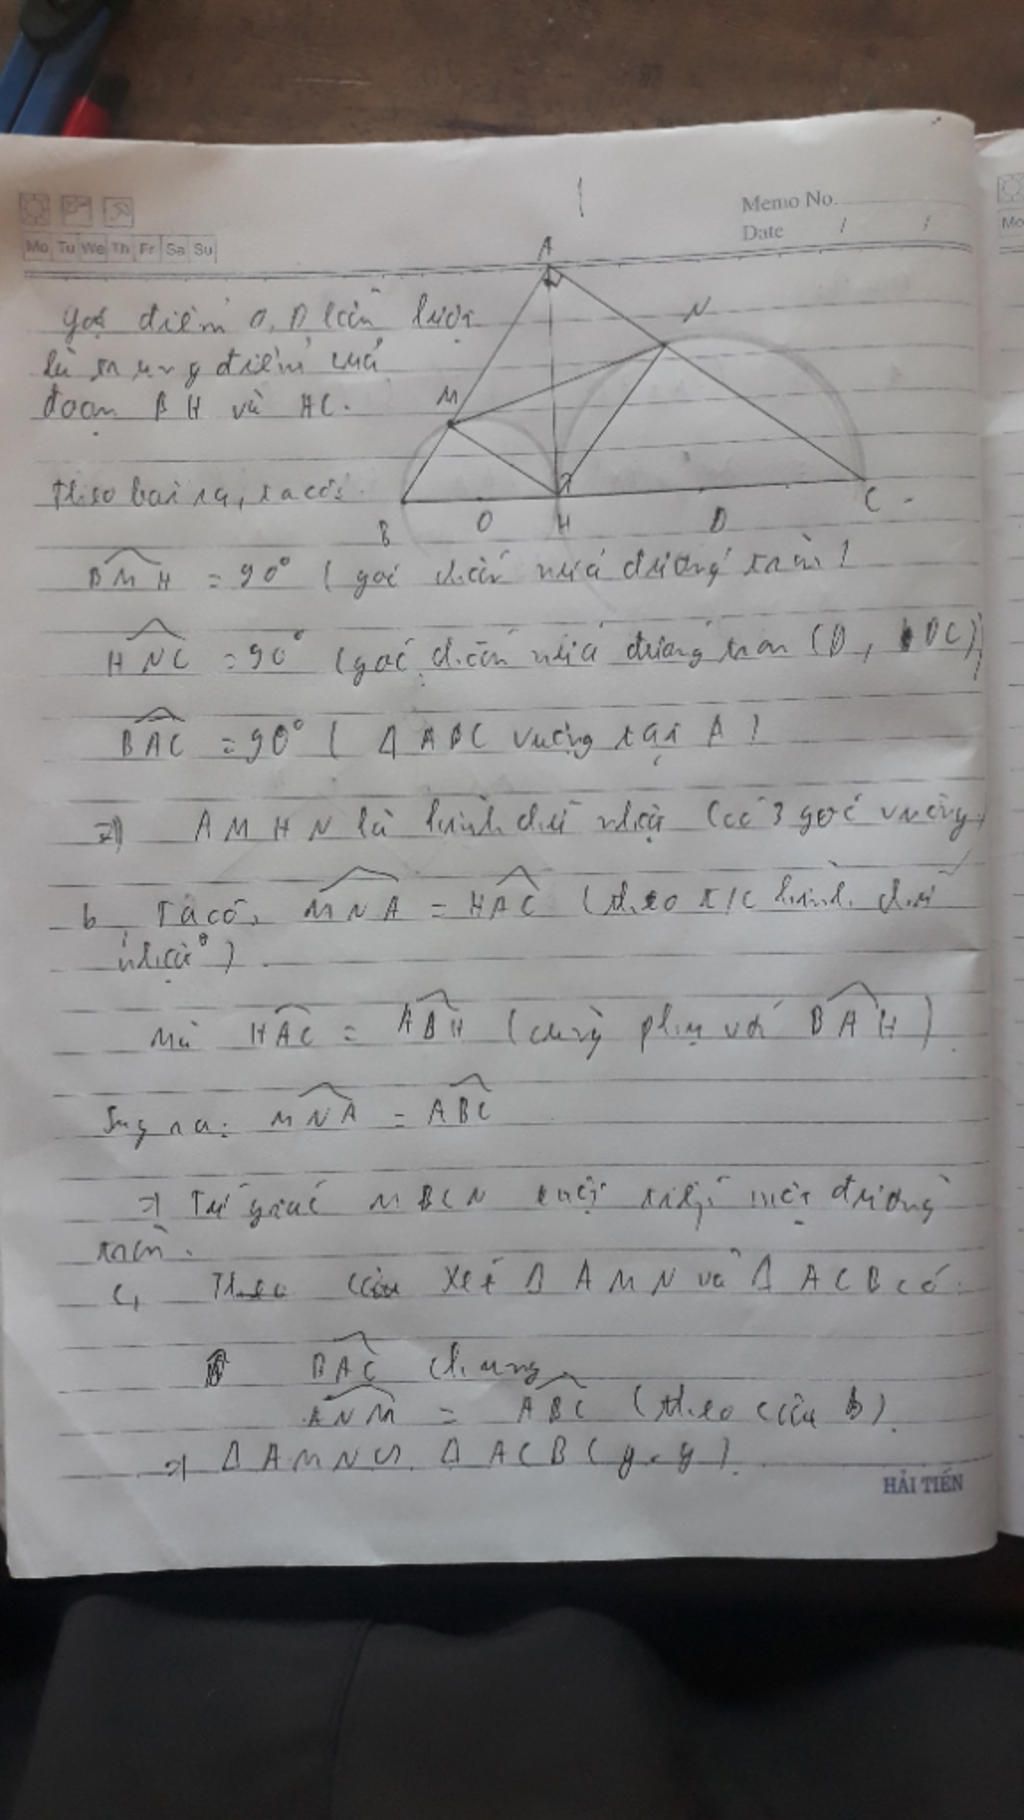 Memo No.
Mo Tu We Th Fr Sa Su
Date / /
A
Gọi điểm O, D lần lượt
N
là trung điểm của
M
đoạn BH và HC.
Theo bài ra, ta có:
B O H D C
BMH = 90° (góc chắn nửa đường tròn)
HNC = 90° (góc chắn nửa đường tròn (D, DC))
BAC = 90° (Δ ABC vuông tại A)
=> AMHN là hình chữ nhật (có 3 góc vuông)
b, Ta có, MNA = HAC (theo t/c hình chữ
nhật)
Mà HAC = ABH (cùng phụ với BAH)
Suy ra: MNA = ABC
=> Tứ giác MBCN nội tiếp một đường
tròn.
c, Xét Δ AMN và Δ ACB có:
BAC chung
ANM = ABC (theo câu b)
=> Δ AMN ∽ Δ ACB (g.g)
HẢI TIẾN